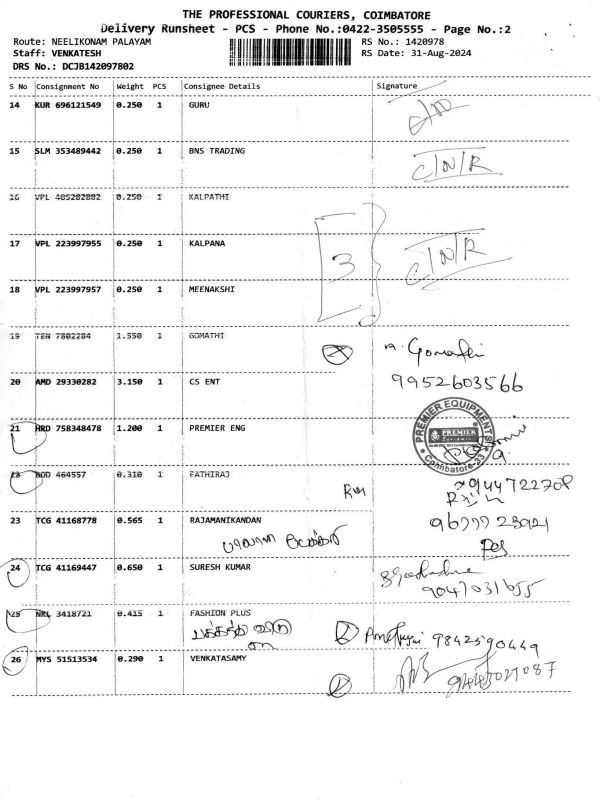 THE PROFESSIONAL COURIERS, COIMBATORE
Delivery Runsheet - PCS - Phone No.:0422-3505555 - Page No.:2
Route: NEELIKONAM PALAYAM RS No.: 1420978
Staff: VENKATESH RS Date: 31-Aug-2024
DRS No.: DCJB142097802
S No Consignment No Weight PCS Consignee Details Signature
14 KUR 696121549 0.250 1 GURU
15 SLM 353489442 0.250 1 BNS TRADING C/N/R
16 VPL 405282882 0.250 1 KALPATHI
17 VPL 223997955 0.250 1 KALPANA 3 C/N/R
18 VPL 223997957 0.250 1 MEENAKSHI
19 TEN 7802284 1.550 1 GOMATHI
20 AMD 29330282 3.150 1 CS ENT 9952603566
21 HRD 758348478 1.200 1 PREMIER ENG PREMIER EQUIPMENTS PREMIER Coimbatore-23
22 BOD 464557 0.310 1 EATHIRAJ
23 TCG 41168778 0.565 1 RAJAMANIKANDAN
24 TCG 41169447 0.650 1 SURESH KUMAR 9047031655
25 NRL 3418721 0.415 1 FASHION PLUS
9842590449
26 MYS 51513534 0.290 1 VENKATASAMY